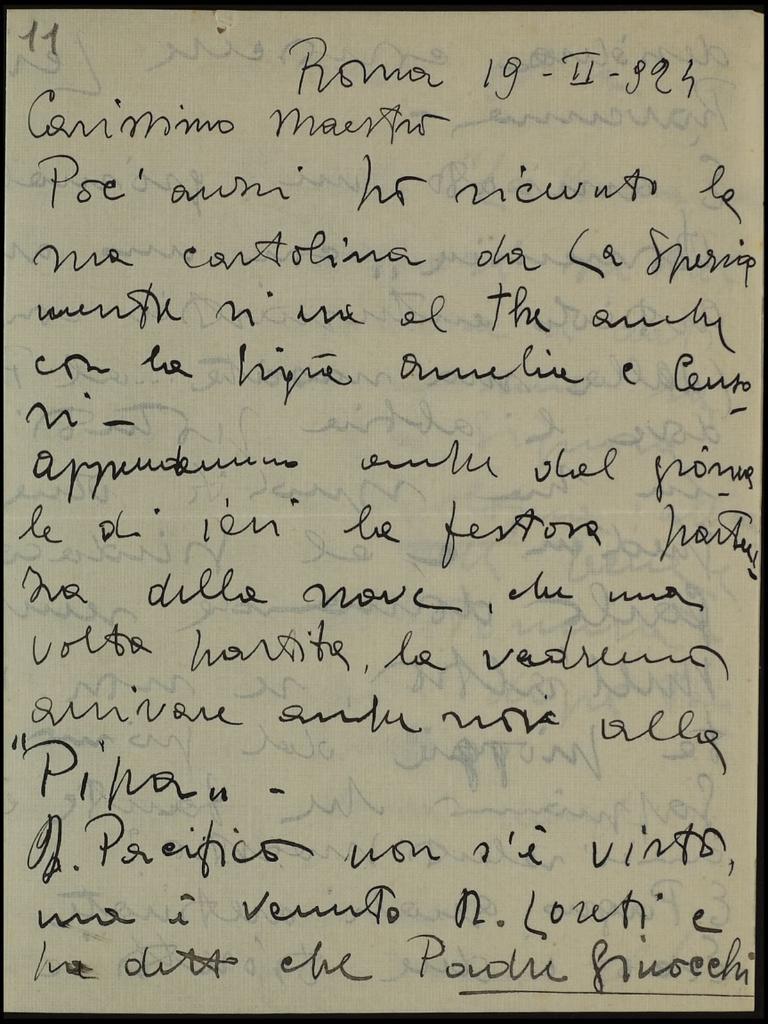 11
Roma 19-II-924
Carissimo Maestro
Poc'anzi ho ricevuto la
sua cartolina da La Spezia
mentre si era al the anche
con la Sig.na Amelia e Censo
ri –
Apprendemmo anche dal giorna
le di ieri la festosa parten-
za della nave, che una
volta partita, la vedremo
arrivare anche noi alla
"Pipa„ -
D. Pacifico non s'è visto,
ma è venuto D. Loreti e
ha detto che Padre Ginocchi